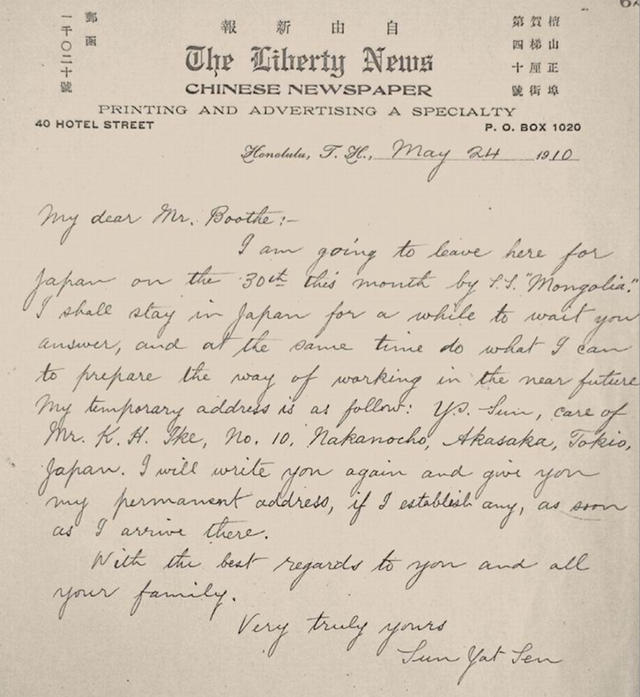 自由新報
郵函
一千〇二十號
檀山正埠
賀梯厘街
第四十號
The Liberty News
CHINESE NEWSPAPER
PRINTING AND ADVERTISING A SPECIALTY
40 HOTEL STREET
P. O. BOX 1020
Honolulu, T. H., May 24 1910
My dear Mr. Boothe:-
I am going to leave here for
Japan on the 30th this month by S.S. "Mongolia."
I shall stay in Japan for a while to wait you
answer, and at the same time do what I can
to prepare the way of working in the near future
My temporary address is as follow: Y.S. Sun, care of
Mr. K. H. Ike, No. 10, Nakanocho, Akasaka, Tokio,
Japan. I will write you again and give you
my permanent address, if I establish any, as soon
as I arrive there.
With the best regards to you and all
your family.
Very truly yours
Sun Yat Sen